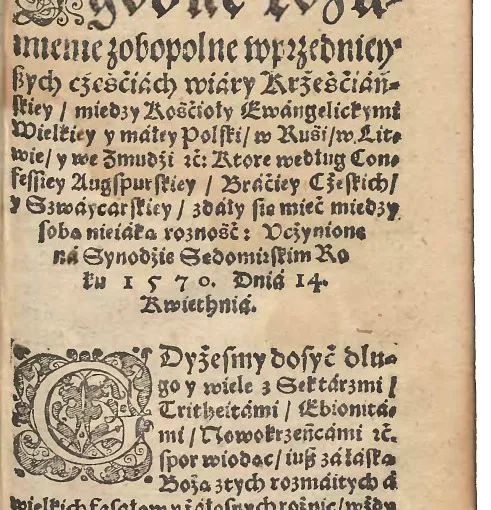 zgodne rozu-
mienie zobopolne wprzedniey-
ßych cżeśćiách wiáry Krżeśćiáń-
skiey / miedzy Kośćioły Ewángelickymi
Wielkiey y máłey Polski / w Ruśi / w Lit-
wie / y we Żmudźi ꝛc: Ktore według Con-
fessiey Augspurskiey / Bráćiey Cżeskich /
y Szwáycarskiey / zdáły sie mieć miedzy
sobą nieiáką rozność: Vcżynione
ná Synodźie Sedomirskim Ro
ku 1570. Dniá 14.
Kwiethniá.
GDyżesmy dosyć dłu-
go y wiele z Sektárzmi /
Tritheitámi / Ebionitá-
mi / Nowokrzeńcámi ꝛc.
spor wiodąc / iuß zá łáską
Bożą z tych rozmáitych á
wielkich